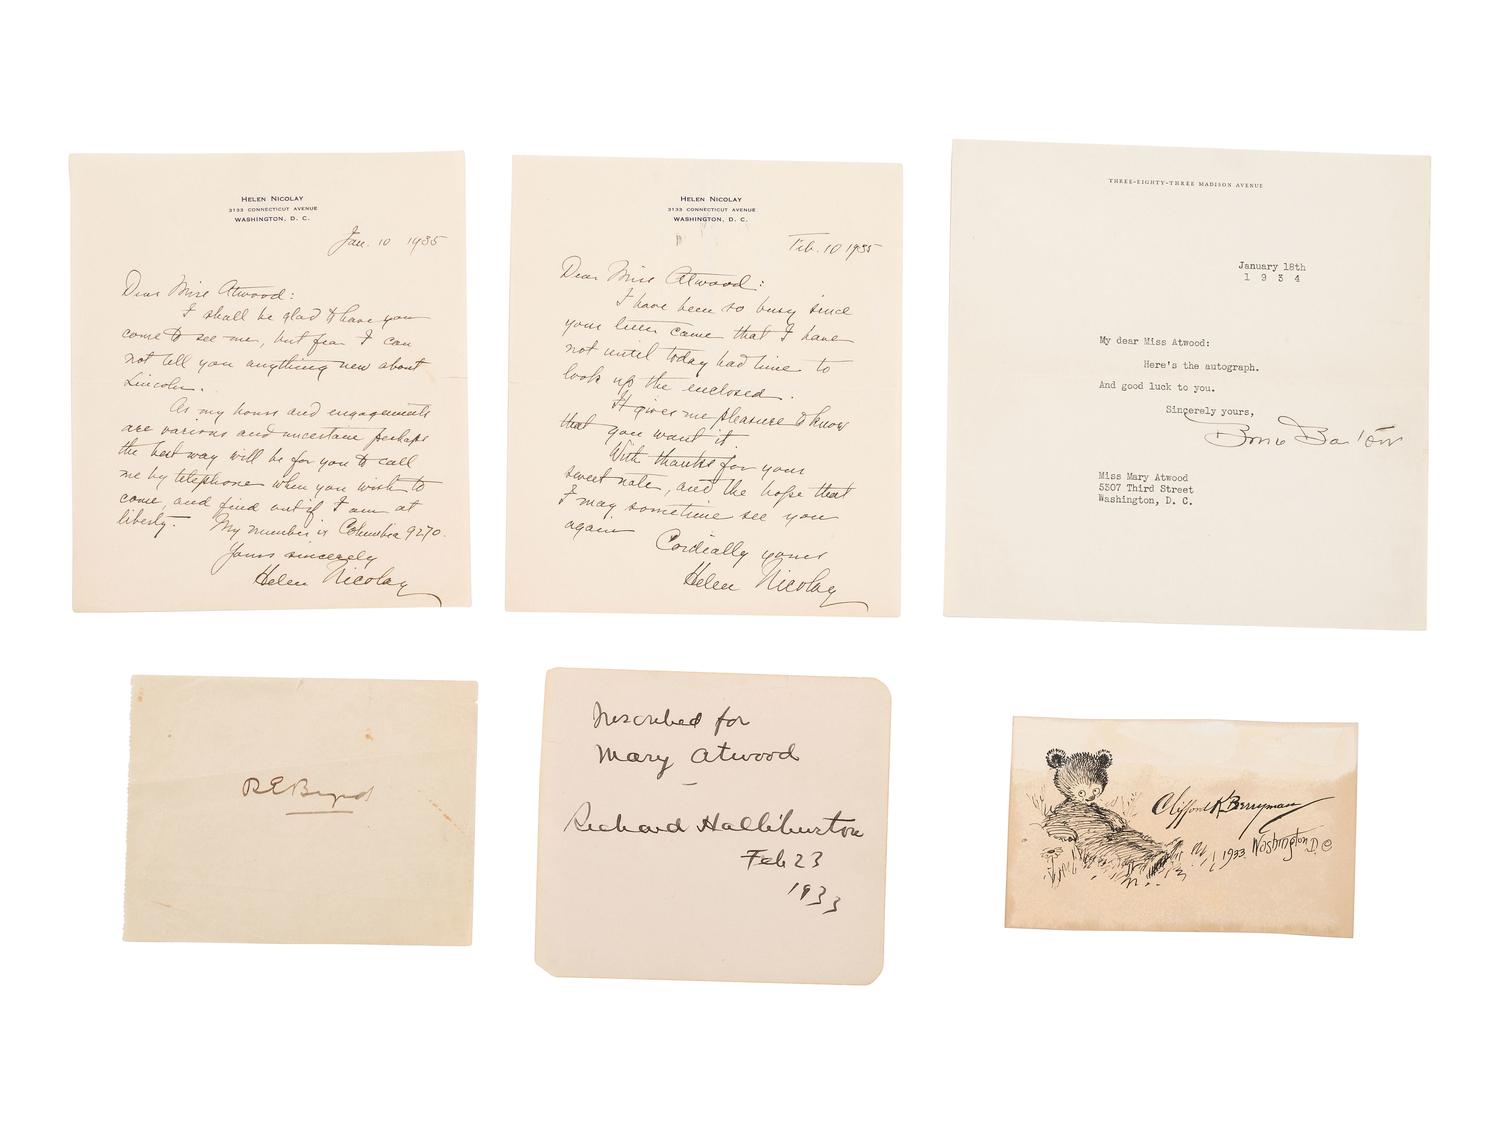 HELEN NICOLAY
3133 CONNECTICUT AVENUE
WASHINGTON, D. C.
Jan. 10 1935
Dear Miss Atwood:
I shall be glad to have you
come to see me, but fear I can
not tell you anything new about
Lincoln.
As my hours and engagements
are various and uncertain perhaps
the best way will be for you to call
me by telephone when you wish to
come, and find out if I am at
liberty. My number is Columbia 9270.
Yours sincerely
Helen Nicolay
HELEN NICOLAY
3133 CONNECTICUT AVENUE
WASHINGTON, D. C.
Feb. 10 1935
Dear Miss Atwood:
I have been so busy since
your letter came that I have
not until today had time to
look up the enclosed.
It gives me pleasure to know
that you want it
With thanks for your
sweet note, and the hope that
I may sometime see you
again
Cordially yours
Helen Nicolay
THREE-EIGHTY-THREE MADISON AVENUE
January 18th
1 9 3 4
My dear Miss Atwood:
Here's the autograph.
And good luck to you.
Sincerely yours,
Bruce Barton
Miss Mary Atwood
5307 Third Street
Washington, D. C.
R E Byrd
Inscribed for
Mary Atwood
Richard Halliburton
Feb 23
1933
Clifford K Berryman
1933. Washington D.C